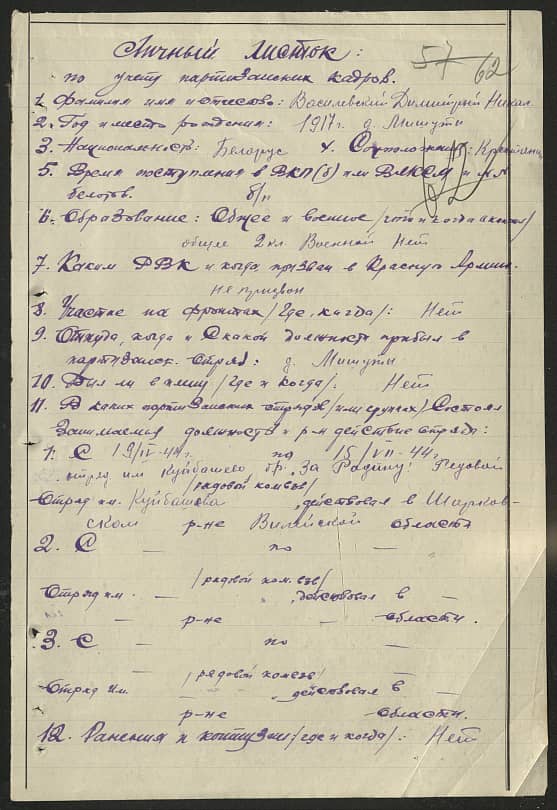 Личный листок:
по учету партизанских кадров.
57 62
1. Фамилия имя и отчество: Василевский Димитрий Никол.
2. Год и место рождения: 1917 г. д. Мишуты
3. Национальность: Беларус 4. Соцположение: Крестьянин
5. Время поступления в ВКП(б) или ВЛКСМ и № №
билетов. б/п
6. Образование: Общее и военное /
общее 2 кл. Военной Нет
7. Каким РВК и когда, призван в Красную Армию.
не призван
8. Участие на фронтах /где, когда/: Нет
9. Откуда, когда и с какой должности прибыл в
партизанск. отряд: д. Мишуты
10. Был ли в плену /где и когда/: Нет
11. В каких партизанских отрядах /или группах/ состоял
занимаемая должность и р-н действие отряда:
1. С 19/IV-44г. по 15/VII-44г.
отряд им Куйбашево бр. "За Родину" Рядовой
/рядовой комвзв/
Отряд им. Куйбашева действовал в Шарков-
ском р-не Вилейской области
2. С — по —
/рядовой ком.взв/
Отряд им. — действовал в —
— р-не — области.
3. С — по —
/рядовой комвзв/ —
Отряд им. — действовал в —
р-не области.
12. Ранения и контузии /где и когда/: Нет